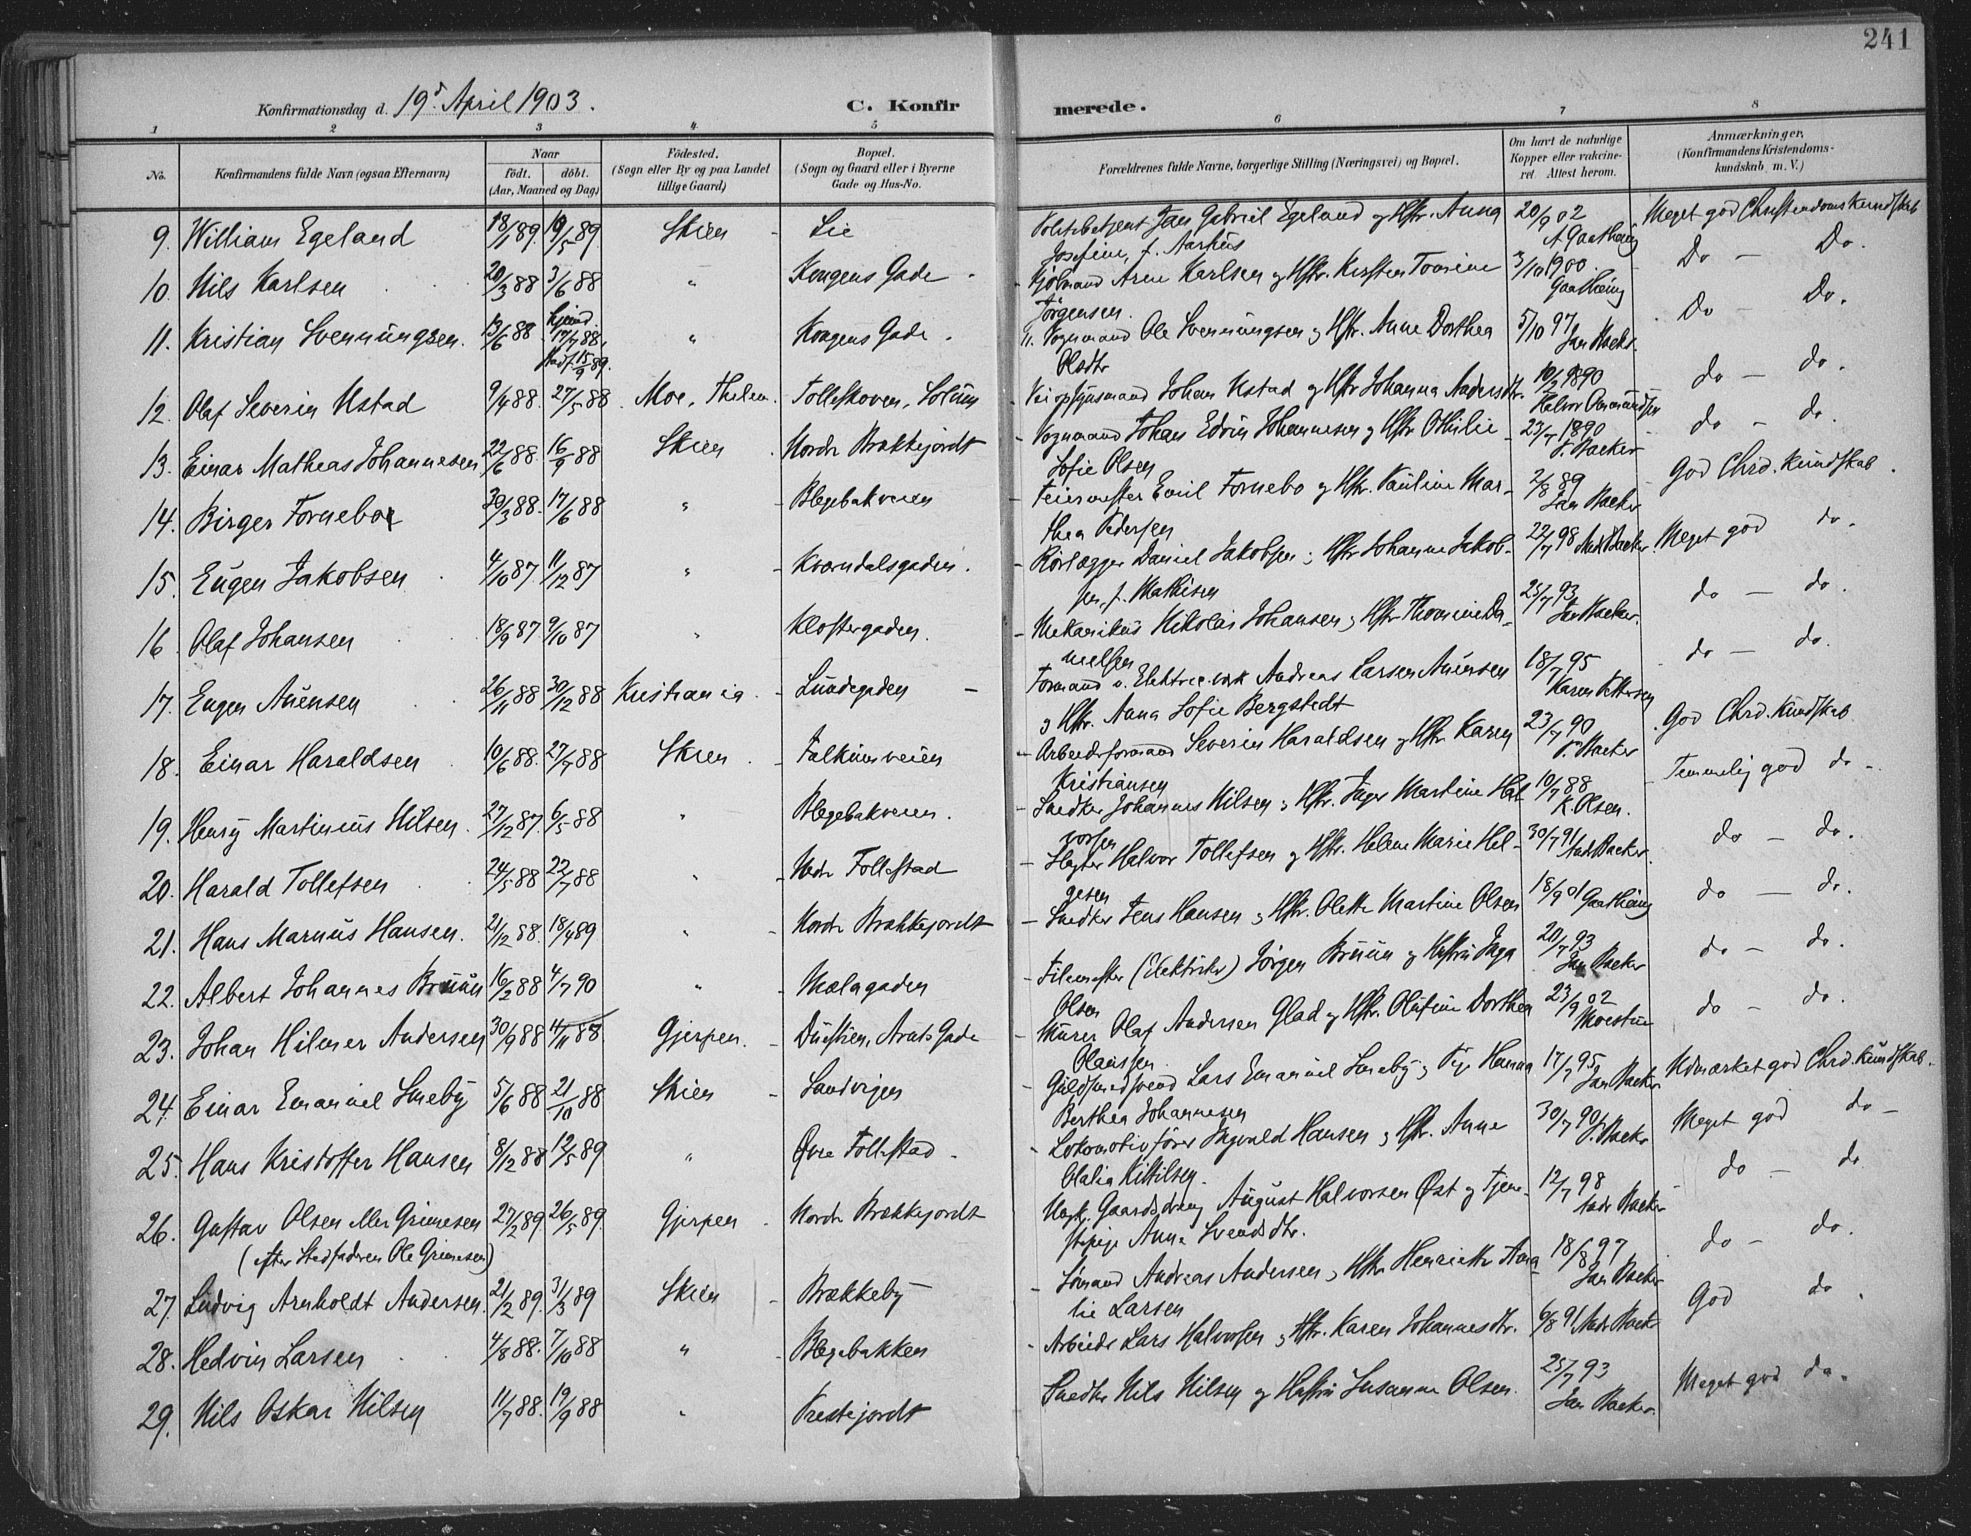 241
Konfirmationsdag d. 19de April 1903.
C. Konfirmerede.
1 2 3 4 5 6 7 8
No. Konfirmandens fulde Navn (ogsaa Efternavn) Naar født. døbt. (Aar, Maaned og Dag) Fødested. (Sogn eller By og paa Landet tillige Gaard) Bopæl. (Sogn og Gaard eller i Byerne Gade og Hus-No. Forældrenes fulde Navne, borgerlige Stilling (Næringsvei) og Bopæl. Om havt de naturlige Kopper eller vakcineret. Attest herom. Anmærkninger. (Konfirmandens Kristendomskundskab m. V.)
9. William Egeland 18/1 89. 19/5 89 Skien - Lie Politibetjent Jan Gabriel Egeland og Hstr. Anna Josefine, f. Aarhus 20/9 02 Meget god Christendomskundskab
10. Nils Karlsen 20/3 88 3/6 88 " Kongens Gade - Arne Karlsen og Hstr. Kirsten Tomine Jørgensen. 3/10 1900 Do - Do.
11. Kristian Svennungsen. 13/6 88 hjemd. 17/7 88. Stadf. 15/9 89. " Kongens Gade. Vognmand Ole Svennungsen og Hstr. Anne Dorthea Olsdtr 5/10 97 Jan Backer. Do - Do.
12. Olaf Severin Ustad 9/4 88. 27/5 88 Moe, Thelem. Tollefskoven, Solum - Veiopsynsmand Johan Ustad og Hstr Johanna Andersdtr. 1890 Halvor do - do.
13. Einar Matheas Johannesen 22/6 88 16/9 88 Skien. Nordr. Brækkejordt - Vognmand Johan Edvin Johannesen og Hstr Othilie Sofie Olsen 23/7 1890 J. Backer do - do.
14. Birger Fornebo 30/3 88. 17/6 88 " - Blegebakveien - Feiermester Emil Fornebo og Hstr. Pauline Marthea Pedersen 2/8 89 Jan Backer God Chrd. kundskab.
15. Eugen Jakobsen 4/10 87 11/12 87 " - Kværndalsgaden. - Rørlægger Daniel Jakobsen og Hstr Johanne Jakobsen, f. Mathisen 22/7 98 Andr Backer Meget god do.
16. Olaf Johansen 18/9 87 9/10 87 " Klostergaden. - Mekanikus Nikolai Johansen og Hstr Thomine Danielsen 25/7 93 Jan Backer. do - do.
17. Eugen Auensen 26/11 88 30/12 88 Kristiania - Lundegaden - Formand v. Elektrec. værk Andreas Larsen Auensen og Hstr. Anna Sofie Bergstedt 18/7 95 Karen Pettersen do - do.
18. Einar Haraldsen 10/6 88. 27/7 88 Skien - Falkumveien - Arbeidsformand Severin Haraldsen og Hstr. Karen Kristiansen 23/7 90 J. Backer God Chrd. kundskab
19. Henry Martinius Nilsen. 27/12 87 6/5 88 " Blegebakveien. - Snedker Johannes Nilsen og Hstr. Inger Martine Halvorsen 10/7 88 K. Olsen. Temmelig god do -
20. Harald Tollefsen 24/5 88 22/7 88 " Nedr. Follestad - Slagter Halvor Tollefsen og Hstr. Helene Marie Helgesen 30/7 91 Andr Backer. do - do.
21. Hans Marnus Hansen. 21/12 88. 18/4 89 " - Nordr. Brækkejordt - Snedker Jens Hansen og Hstr. Olette Martine Olsen 18/9 01 do - do.
22. Albert Johannes Bruun 16/2 88 4/7 90 " Mælagaden - Filemester (Elektriker) Jørgen Bruun og Hustru Inga Olsen 20/7 93 Jan Backer do - do.
23. Johan Hilmer Andersen 30/9 88 4/11 88 Gjerpen. - Duestien, Aralds Gade - Murer Olaf Andersen Glad og Hstr. Olufine Dorthea Olaussen 23/9 02 Moestue do - do.
24. Einar Emanuel Sneby 5/6 88 21/10 88 Skien - Landvigen - Guldsmedsvend Lars Emanuel Sneby og Pige Hanna Berthea Johannesen 17/7 95 Jan Backer Udmærket god Chrd. kundskab.
25. Hans Kristoffer Hansen 8/12 88 12/5 89 " Øvre Follestad. - Lokomotivfører Ingvald Hansen og Hstr. Anne Olalia Kittilsen. 30/7 90 J. Backer Meget god do -
26. Gustav Olsen eller Grimesen 27/2 89 26/5 89 Gjerpen. Nordr. Brækkejordt Ungk. Gaardsdreng August Halvorsen Øst og Tjenestepige Anne Svendsdtr. 12/7 98 Andr Backer do - do
(efter Stedfaderen Ole Grimesen)
27. Ludvig Arnholdt Andersen. 21/2 89. 31/3 89 Skien - Brækkeby - Sømand Andreas Andersen og Hstr. Henriette Amalie Larsen 18/8 97 Jan Backer do - do.
28. Hedvin Larsen 4/8 88. 7/10 88 " - Blegebakken - Arbeider Lars Halvorsen og Hstr. Karen Johannesdtr. 6/8 91 Andr Backer God do.
29. Nils Oskar Nilsen 11/7 88. 19/9 88 " Prestejordt Snedker Nils Nilsen og Hustru Susanne Olsen. 25/7 93 Jan Backer. Meget god do.